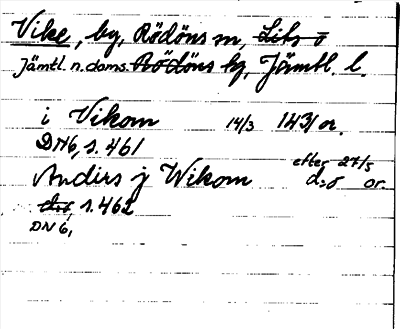 Vike, by, Rödöns sn, Lits o
Jämtl. n. doms. Rödöns tg, Jämtl. l.
i Vikom 14/3 1431 or.
DN6, s. 461
Anders j Wikom efter 27/5 d.o or.
d:o, s. 462
DN 6,